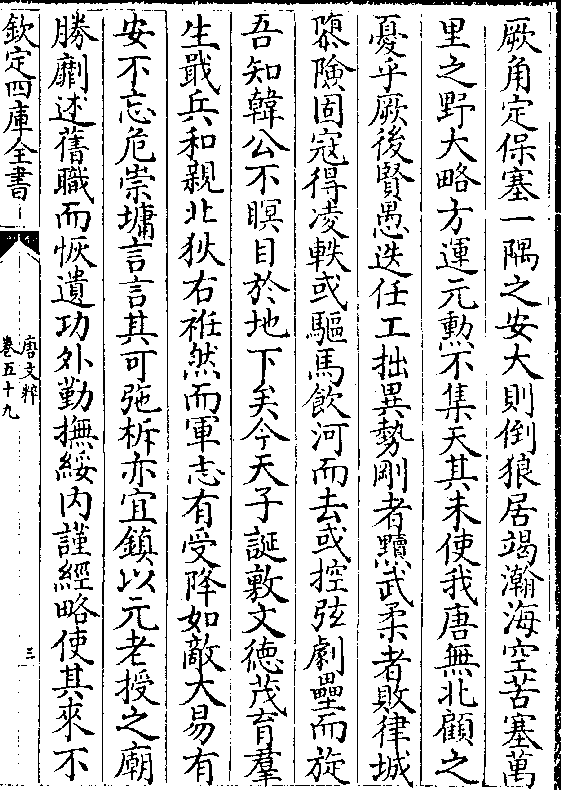 厥角定保塞一隅之安大則倒狼居竭瀚海空苦塞萬
里之野大略方運元勲不集天其未使我唐無北顧之
憂乎厥後賢愚迭任工拙異勢剛者黷武柔者敗律城
隳險固寇得凌軼或驅馬飲河而去或控弦劇壘而旋
吾知韓公不瞑目於地下矣今天子誕敷文德茂育羣
生戢兵和親北狄右衽然而軍志有受降如敵大易有
安不忘危崇墉言言其可弛柝亦宜鎮以元老授之廟
勝劘述舊職而恢遺功外勤撫綏内謹經略使其來不
欽定四庫全書
唐文粹
卷五十九
三